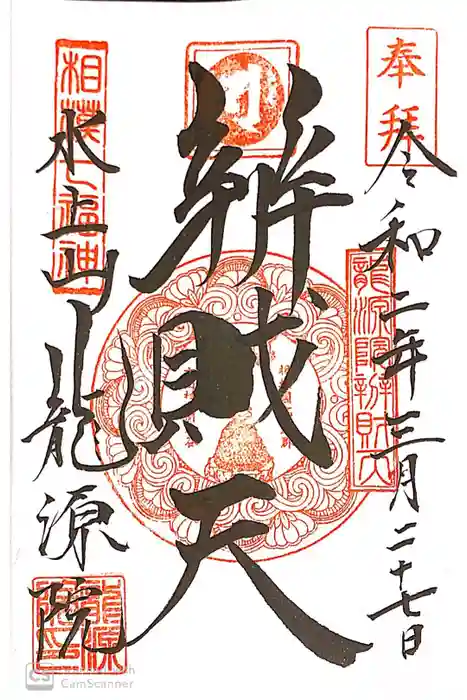 奉拝
令和二年三月二十七日
龍源院辦財天
辦財天
相模七福神
水上山龍源院
龍源院印
CS CamScanner